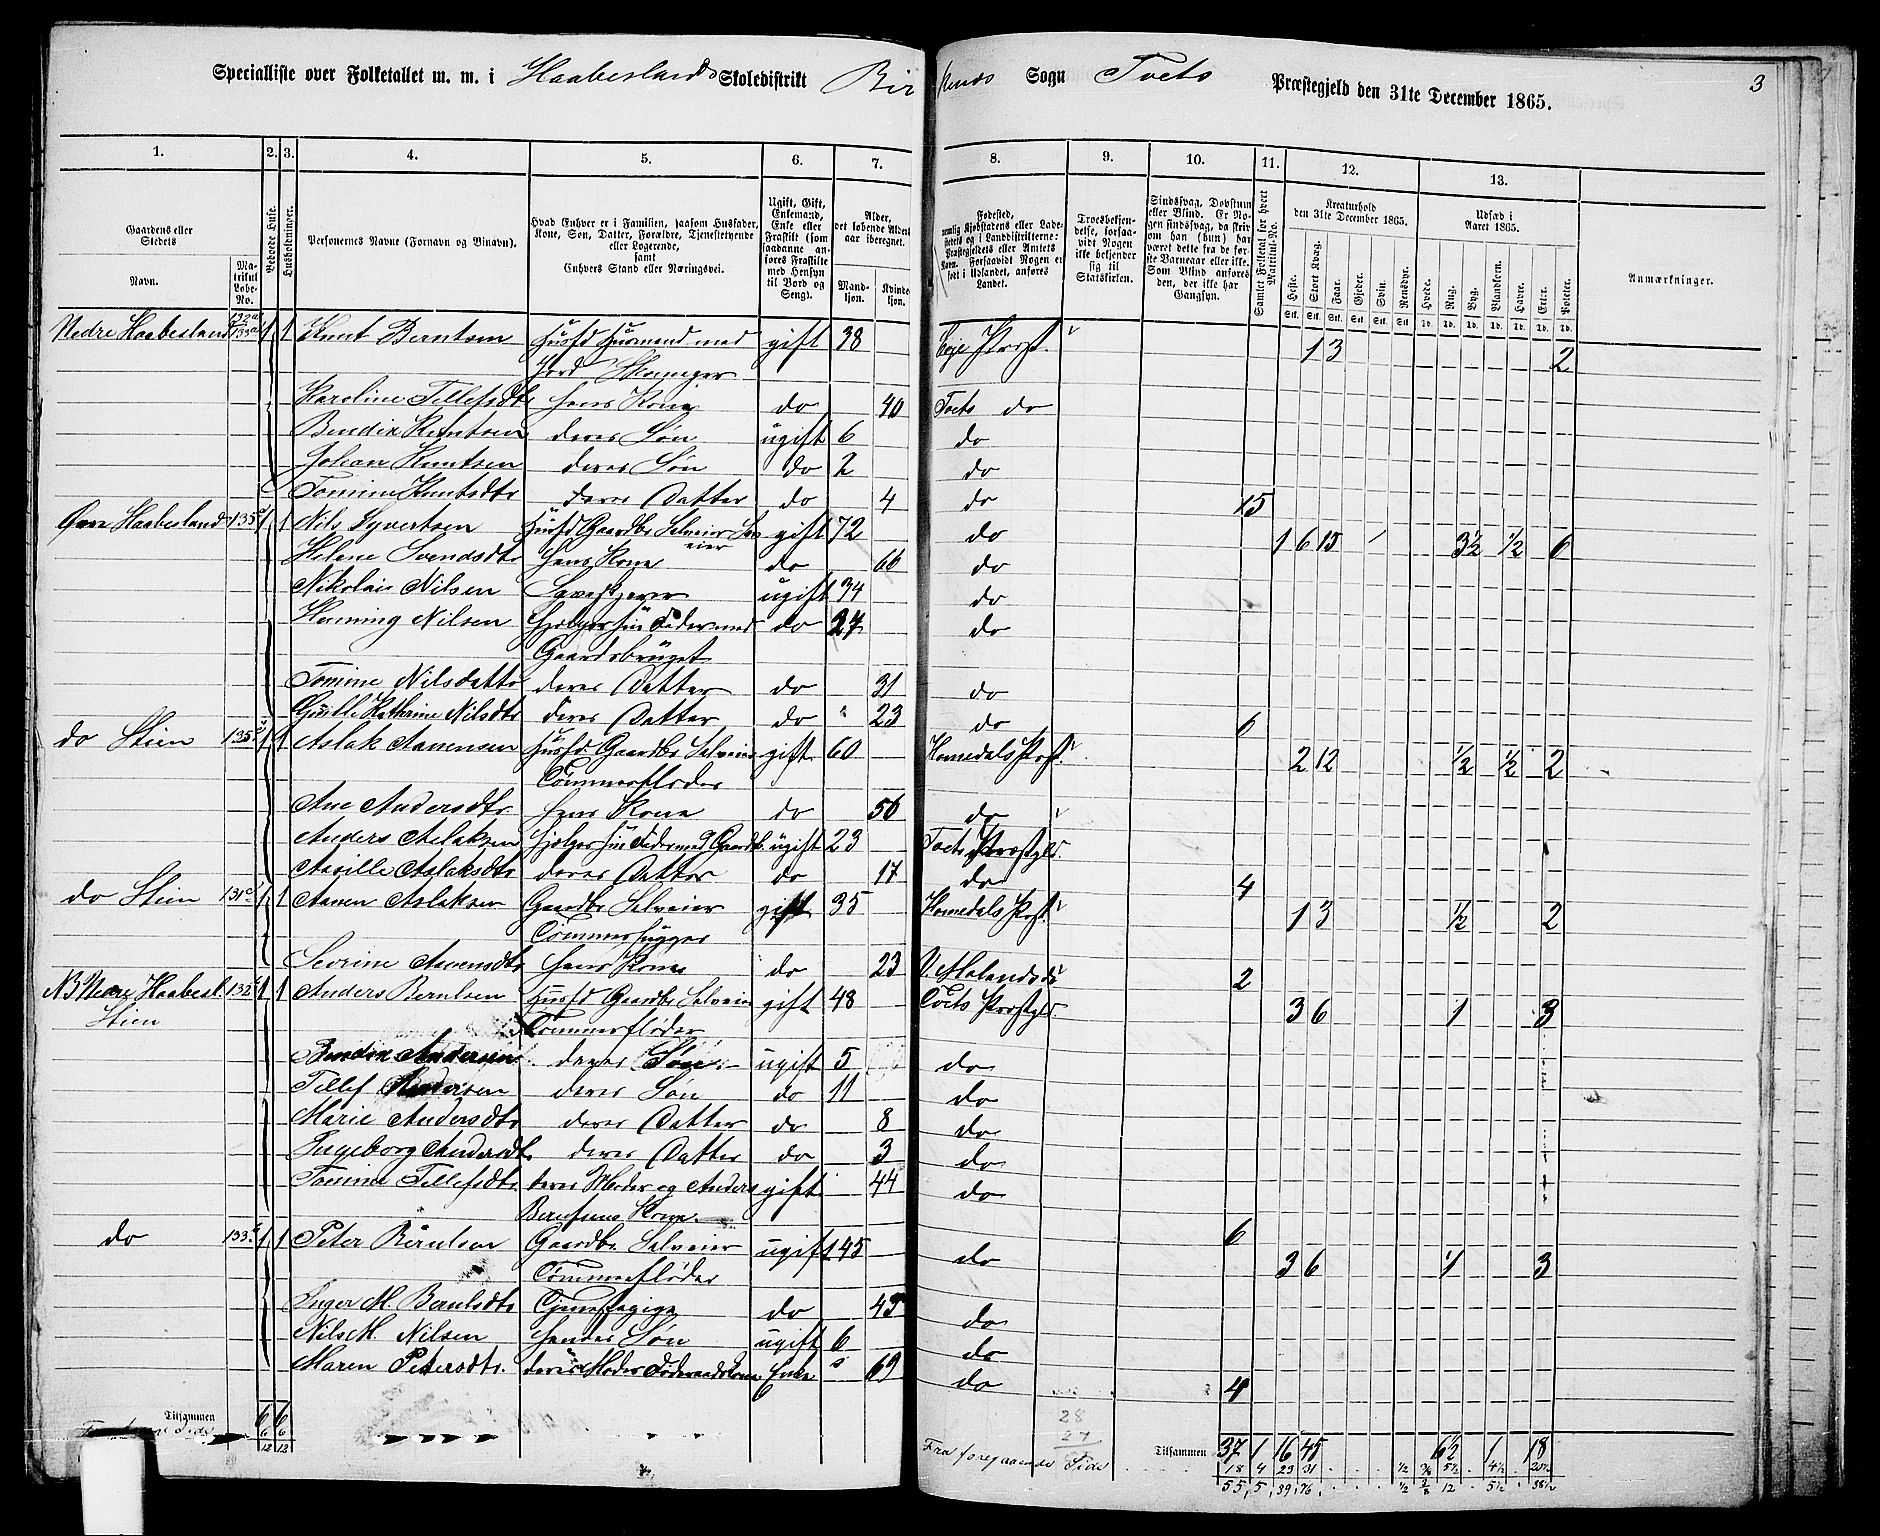 Specialliste over Folketallet m. m. i Haabeslands Skoledistrikt Birkenes Sogn Tvets Præstegjeld den 31te December 1865. 3
1. 2. 3. 4. 5. 6. 7. 8. 9. 10. 11. 12. 13.
Gaardens eller Stedets Navn. Matrikul Løbe-No. Beboede Huse. Husholdninger. Personernes Navne (Fornavn og Binavn).
Hvad Enhver er i Familien, saasom Husfader, Kone, Søn, Datter, Forældre, Tjenestetyende eller Logerende, samt Enhvers Stand eller Næringsvei.
Ugift, Gift, Enkemand, Enke eller Fraskilt (som saadanne anføres Fraskilte med Hensyn til Bord og Seng).
Alder, det løbende Alders aar iberegnet. Mandkjøn. Kvindekjøn.
Troesbekjendelse, forsaavidt Nogen ikke bekjender sig til Statskirken.
Samlet Folketal for hvert Matrikul-No.
Kreaturhold den 31te December 1865. Heste. Stort Kvæg. Faar. Gjeder. Svin. Rensdyr.
Udsæd i Aaret 1865. Hvede. Rug. Byg. Blandkorn. Havre. Erter. Poteter.
Anmærkninger.
Nedre Haabesland 132a 133a 1 1 Knut Berntsen Husfd Husmand med gift 38 Eje Præst. 1 3 2
Jord Skomager
Karoline Tellefsdtr hans Kone do 40 Tvets do
Bendix Knutsen deres Søn ugift 6 do
Johan Knutsen deres Søn do 2 do
Tomine Knutsdtr deres Datter do 4 do 15
Øvre Haabesland 135 1 1 Nils Syvertsen Husfd Gaardbr Selveier gift 72 do 1 6 15 3½ ½ 6
Helene Svendsdtr hans Kone do 66 do
Nikolai Nilsen ugift 34 do
Henning Nilsen hjelper sin Fader med do 27 do
Gaardsbruget
Tomine Nilsdattr deres Datter do 31 do
Kathrine Nilsdtr deres Datter do 23 do 6
do Stien 135 1 1 Aslak Aanensen Husfd Gaardbr Selveier gift 60 Homedals Præst. 2 12 ½ ½ 2
Tømmerfløder
Ane Andersdtr hans Kone do 56 do
Anders Aslaksen hjelper sin Fader med Gaardb. ugift 23 Tvets Præstgld.
Aslaksdtr deres Datter do 17 do 4
do Stien 131 1 1 Aanen Aslaksen Gaardbr Selveier gift 35 Homedals Præst. 1 3 ½ 2
Tømmerhugger
Sevrine Aanensdtr hans Kone do 23 V. Molands do 2
NB Nedre Haabesl. 132 1 1 Anders Berntsen Husfd Gaardbr Selveier gift 48 Tvets Præstgld 3 6 1 3
Stien Tømmerfløder
Bendix Andersen deres Søn ugift 5 do
Tellef Andersen deres Søn do 11 do
Marie Andersdtr deres Datter do 8 do
Ingeborg Andersdtr deres Datter do 3 do
Tomine Tellefsdtr deres Moder og Anders gift 44 do
Berntsens Kone 6
do 133 1 1 Peter Berntsen Gaardbr Selveier ugift 45 do 3 6 1 3
Tømmerfløder
Inger M. Berntsdtr Tjenestepige do 45 do
Nils M. Nilsen hendes Søn ugift 6 do
Maren Petersdtr. deres Moder Føderaadskone Enke 69 do 4
Tilsammen 6 6 Tilsammen 37 1 16 45 6½ 1 18
6 6 28 27 Fra foregaaende Side 18 4 23 31 ½ 5½ 4½ 20½
12 12 55 5 39 76 ½ 12 5½ 38½